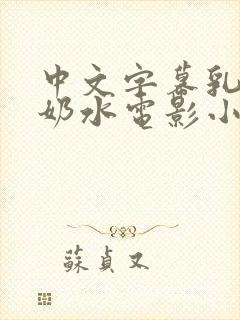 中文字幕乳
奶水电影小
蘇貞又